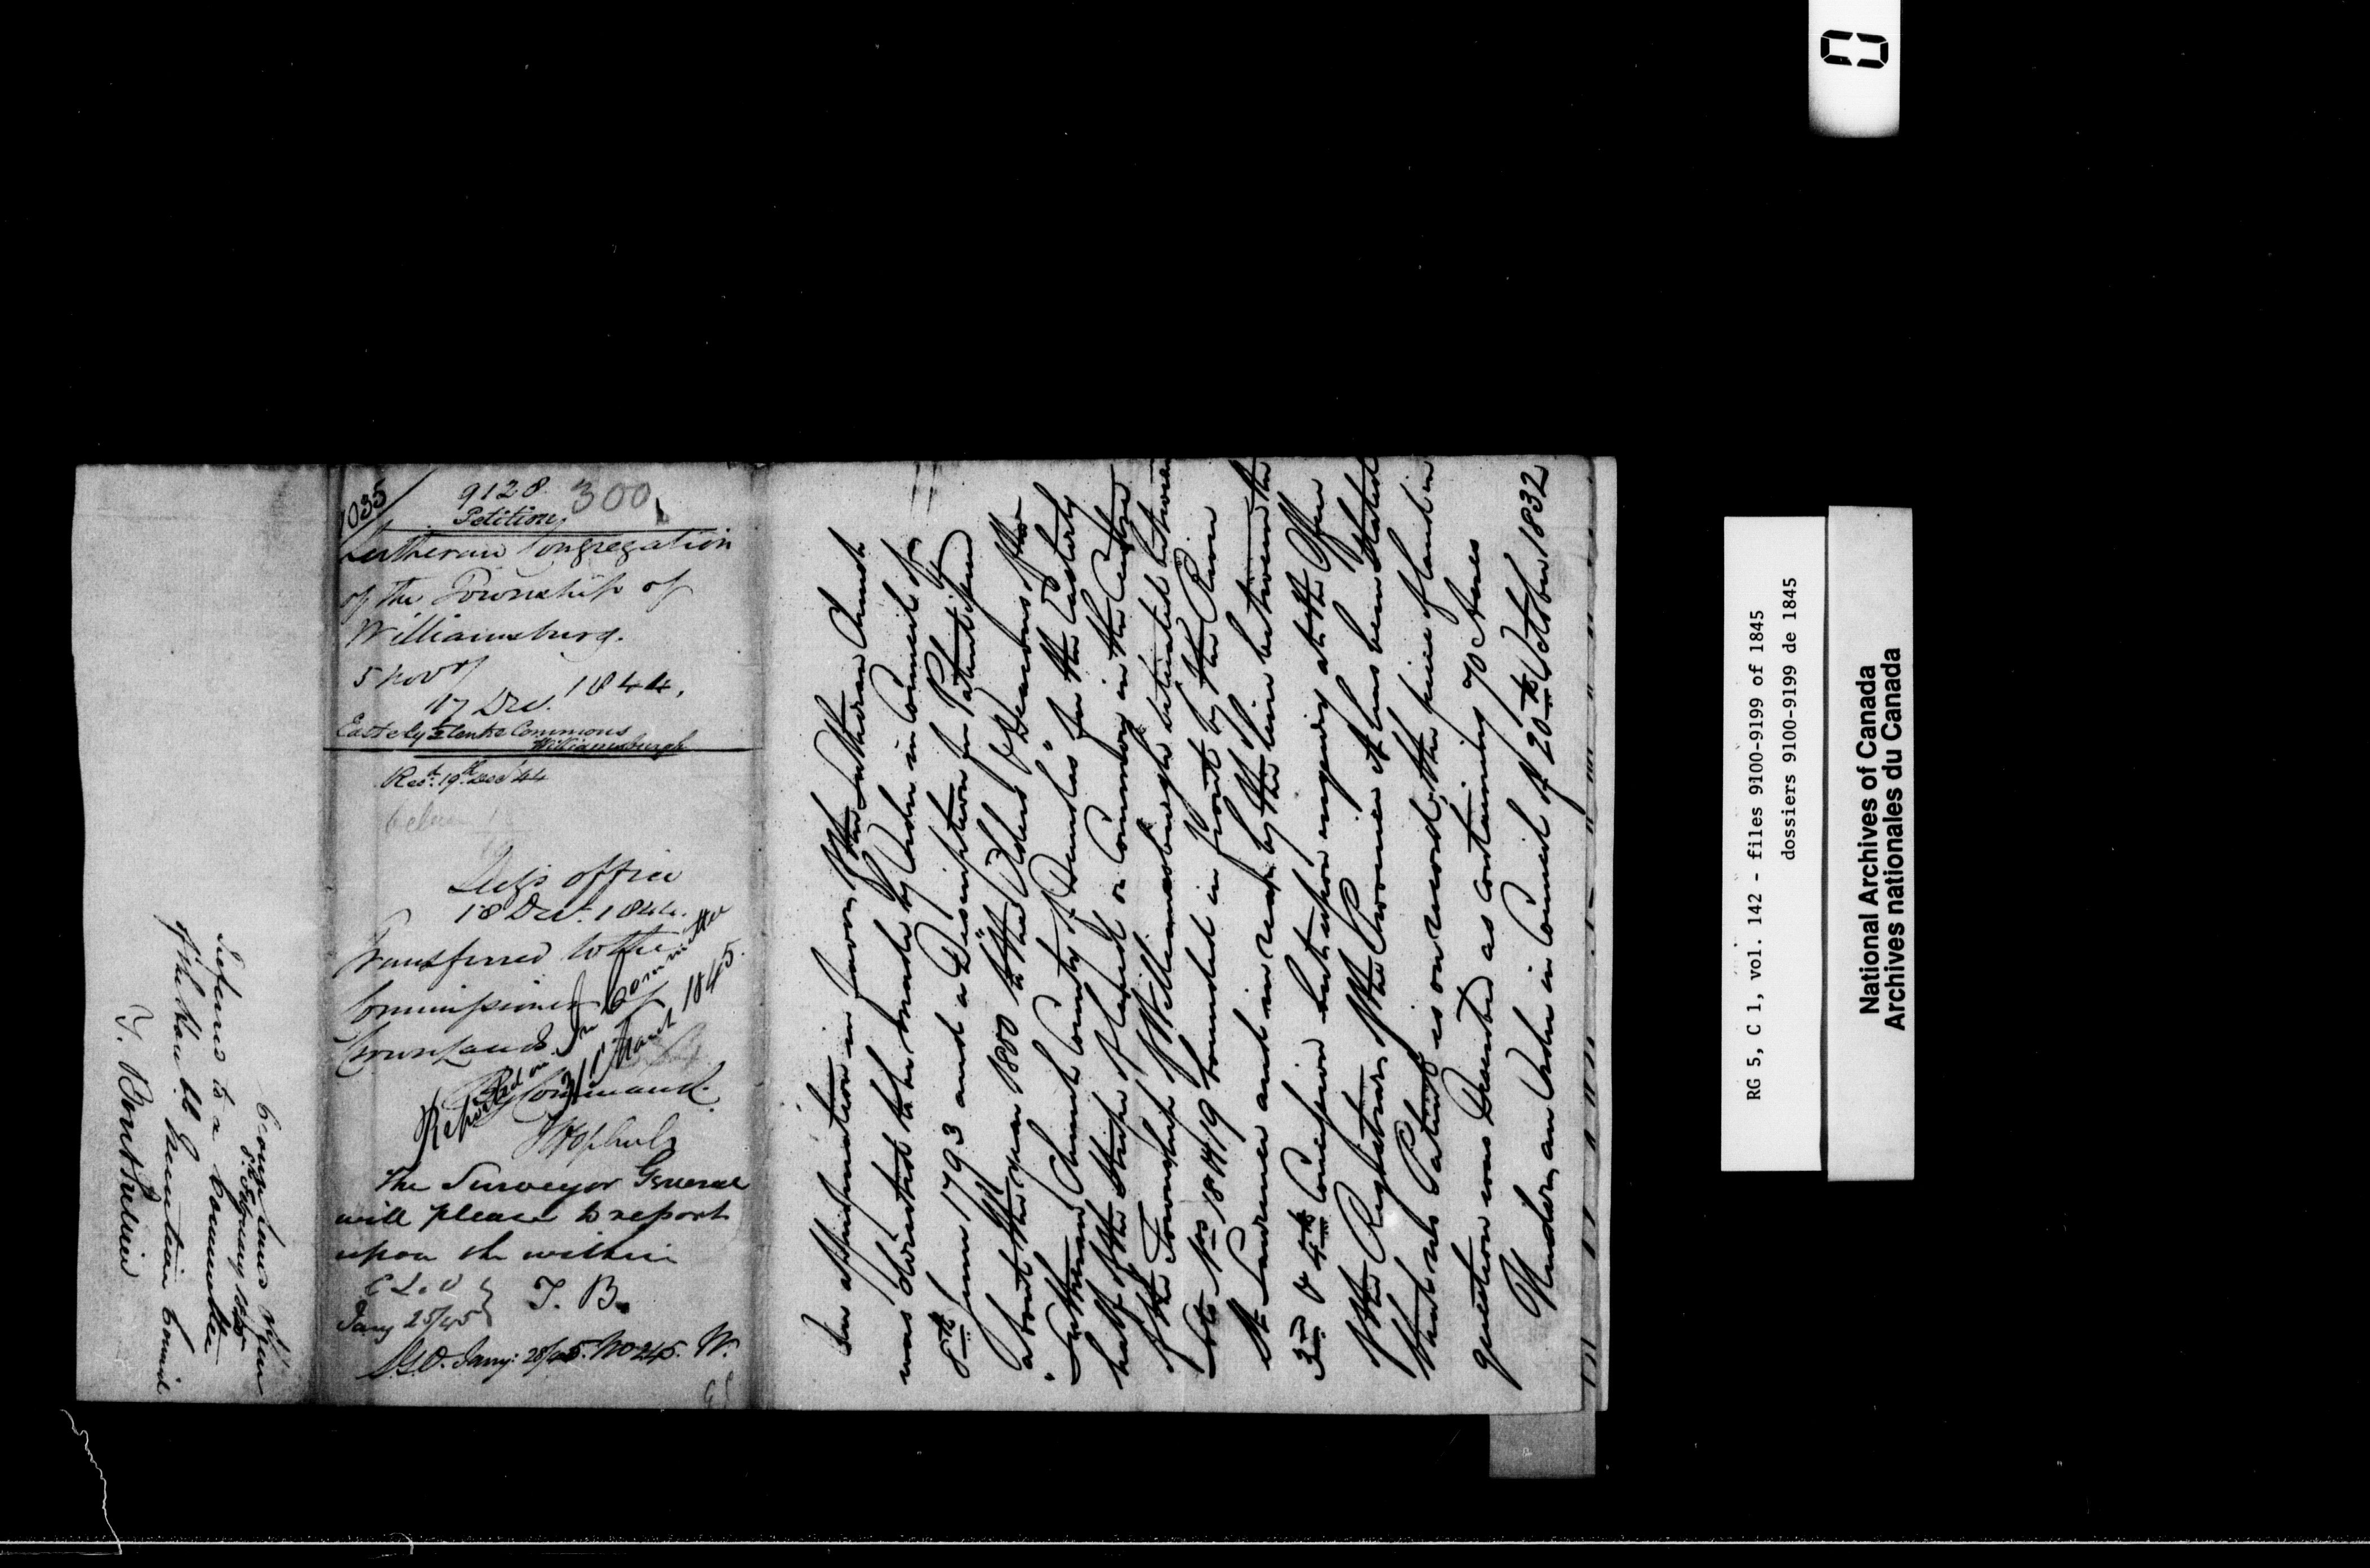 1035
9128.
300
Petition,
Lutheran Congregation
of the Township of
Williamsburg.
5 Novr
17 Dec. 1844.
Easterly ½ Centre Commons
Williamsburgh
Recd. 19th Decr 44
Secy's office
18 Decr. 1844.
Transferred to the
Commissioner of
Crown Lands.
By Command.
J Hopkirk
In Committee
31st March 1845.
Reported on
The Surveyor General
will please to report
upon the within
C L. O
Jany 25/45
T. B.
S.G.O. Jany: 28/45. No 245. W.
Crown Lands Office
8th February 1845
Referred to a Committee
of the Honble Executive Council
T. Bouthillier
An appropriation in favor of the Lutheran Church
was directed to be made by Order in Council of
8th June 1793 and a Description for Patent issued
about the year 1800 to "the Elders & Deacons of the
"Lutheran Church County of Dundas" for the Easterly
half of the Stripe of land or Commons in the Centre
of the Township of Williamsburgh situated between
Lots Nos 18 & 19 bounded in front by the River
St. Lawrence and in rear by the line between the
3rd & 4th Concession but upon enquiry at the Office
of the Registrar of the Province it has been stated
that no Patent is on record, the piece of land in
question was Described as containing 70 Acres
Under an Order in Council of 20th October 1832
RG 5, C 1, vol. 142 - files 9100-9199 of 1845
dossiers 9100-9199 de 1845
National Archives of Canada
Archives nationales du Canada